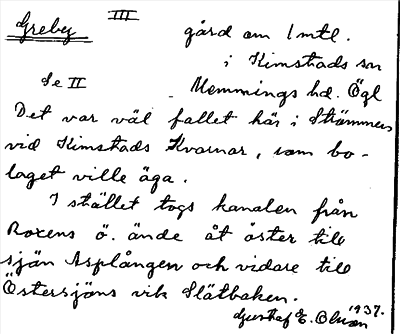 Greby III gård om 1 mtl.
i Kimstads sn
Se II Memmings hd. Ögl
Det var väl fallet här i Strömmen
vid Kimstads Kvarnar, som bo-
laget ville äga.
I stället togs kanalen från
Roxens ö. ände åt öster till
sjön Asplången och vidare till
Östersjöns vik Slätbaken.
Gustaf E. Olsson 1937.